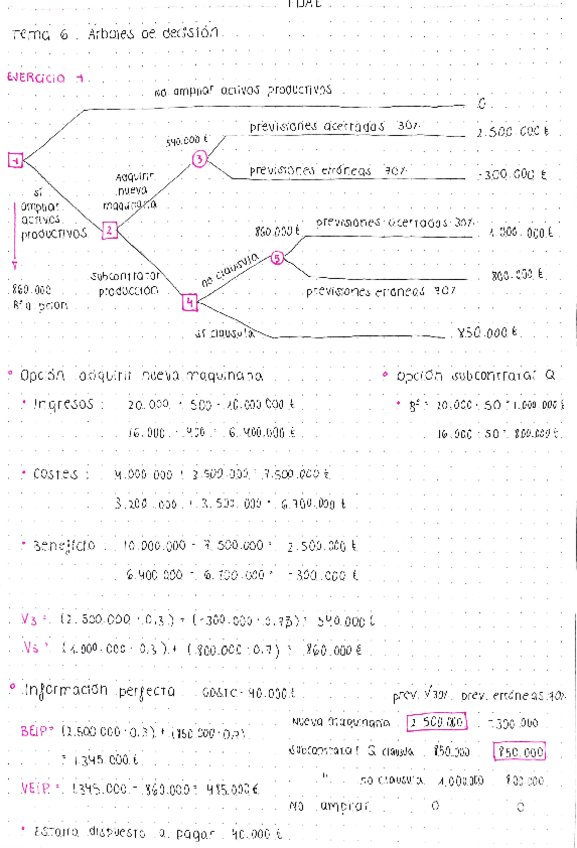 Tema 6. Árboles de decisión.
EJERCICIO 1.
no ampliar activos productivos
0
540.000 €
previsiones acertadas 30%
2.500.000 €
1
3
Adquirir nueva maquinaria
previsiones erróneas 70%
-300.000 €
sí ampliar activos productivos
2
860.000 €
previsiones acertadas 30%
1.000.000 €
no clausula
5
860.000
Bº a priori
subcontratar producción
4
800.000 €
previsiones erróneas 70%
sí clausula
850.000 €
• Opción adquirir nueva maquinaria
• Opción subcontratar Q
• Ingresos: 20.000 · 500 = 10.000.000 €
• Bº = 20.000 · 50 = 1.000.000 €
16.000 · 400 = 6.400.000 €
16.000 · 50 = 800.000 €
• Costes: 4.000.000 + 3.500.000 = 7.500.000 €
3.200.000 + 3.500.000 = 6.700.000 €
• Beneficio: 10.000.000 - 7.500.000 = 2.500.000 €
6.400.000 - 6.700.000 = -300.000 €
V3 = (2.500.000 · 0,3) + (-300.000 · 0,7) = 540.000 €
V5 = (1.000.000 · 0,3) + (800.000 · 0,7) = 860.000 €
• Información perfecta COSTE = 40.000 €
prev. √ 30% prev. erróneas 70%
Nueva maquinaria 2.500.000 -300.000
BEIP = (2.500.000 · 0,3) + (850.000 · 0,7)
= 1.345.000 €
Subcontratar S. clausula 850.000 850.000
" no clausula 1.000.000 800.000
VEIP = 1.345.000 - 860.000 = 485.000 €
No ampliar 0 0
• Estaría dispuesto a pagar 40.000 €